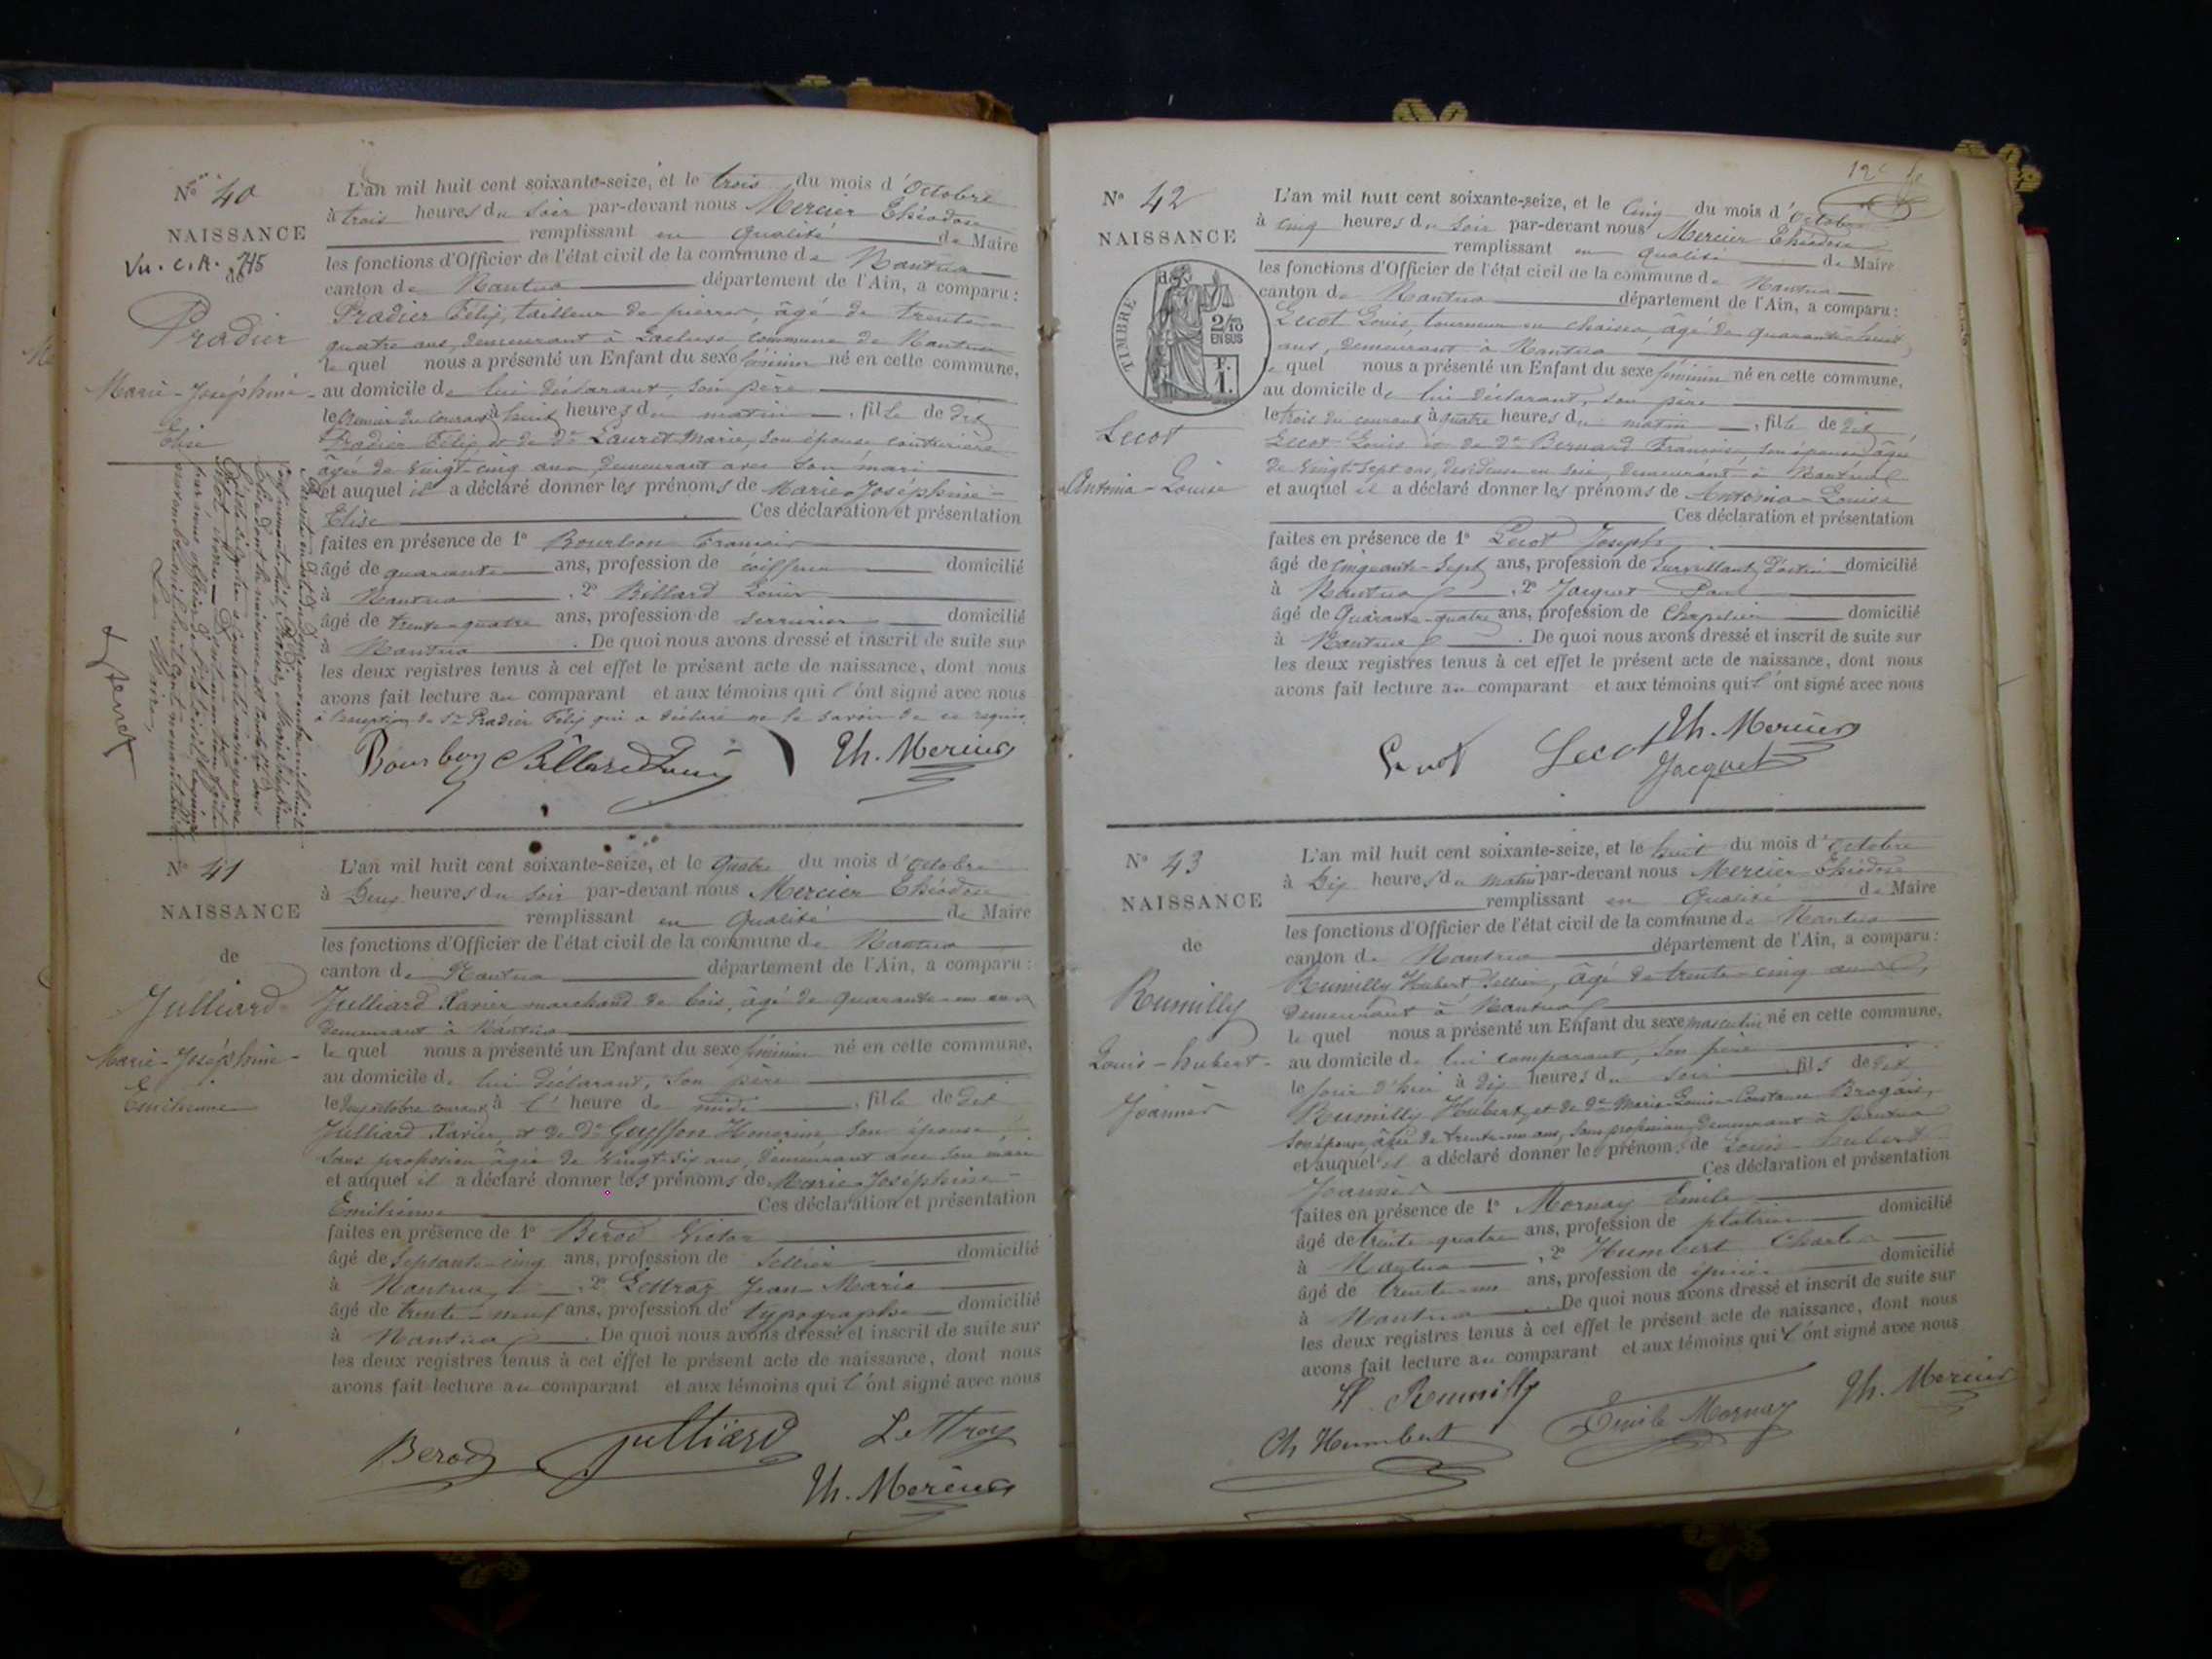 N° 40
NAISSANCE
Vu. C.A. 745
de
Pradier
Marie-Joséphine-
Elise
L'an mil huit cent soixante-seize, et le trois du mois d'Octobre
à trois heures du soir par-devant nous Mercier Théodore
remplissant en qualité de Maire
les fonctions d'Officier de l'état civil de la commune de Nantua
canton de Nantua département de l'Ain, a comparu :
Pradier Félix, tailleur de pierres, âgé de trente-
quatre ans, demeurant à Lacluse, commune de Nantua
le quel nous a présenté un Enfant du sexe féminin né en cette commune,
au domicile de lui déclarant, son père
le premier du courant à huit heures du matin, fille de dit
Pradier Félix et de De Lauret Marie, son épouse, couturière
âgée de vingt-cinq ans, demeurant avec son mari
et auquel il a déclaré donner les prénoms de Marie-Joséphine-
Elise Ces déclaration et présentation
faites en présence de 1° Bourbon François
âgé de quarante ans, profession de coiffeur domicilié
à Nantua, 2° Billard Louis
âgé de trente-quatre ans, profession de serrurier domicilié
à Nantua. De quoi nous avons dressé et inscrit de suite sur
les deux registres tenus à cet effet le présent acte de naissance, dont nous
avons fait lecture au comparant et aux témoins qui l'ont signé avec nous
à l'exception de Sr Pradier Félix qui a déclaré ne le savoir de ce requis.
Bourbon Billard Louis Th. Mercier
Le Maire,
N° 41
NAISSANCE
de
Julliard
Marie-Joséphine-
Emilienne
L'an mil huit cent soixante-seize, et le quatre du mois d'Octobre
à deux heures du soir par-devant nous Mercier Théodore
remplissant en qualité de Maire
les fonctions d'Officier de l'état civil de la commune de Nantua
canton de Nantua département de l'Ain, a comparu :
Julliard Xavier marchand de bois, âgé de quarante-un ans
demeurant à Nantua
le quel nous a présenté un Enfant du sexe féminin né en cette commune,
au domicile de lui déclarant, son père
le deux octobre courant à l' heure de midi, fille de dit
Julliard Xavier, et de De Guyffon Honorine, son épouse,
sans profession, âgée de vingt-six ans, demeurant avec son mari
et auquel il a déclaré donner les prénoms de Marie-Joséphine-
Emilienne Ces déclaration et présentation
faites en présence de 1° Berod Victor
âgé de septante-cinq ans, profession de sellier domicilié
à Nantua, 2° Lettraz Jean-Marie
âgé de trente-neuf ans, profession de typographe domicilié
à Nantua. De quoi nous avons dressé et inscrit de suite sur
les deux registres tenus à cet effet le présent acte de naissance, dont nous
avons fait lecture au comparant et aux témoins qui l'ont signé avec nous
Berod Julliard Lettraz
Th. Mercier
N° 42
NAISSANCE
de
TIMBRE
2/10
EN SUS
F.
1.
Lecot
Antonia-Louise
L'an mil huit cent soixante-seize, et le cinq du mois d'Octobre
à cinq heures du soir par-devant nous Mercier Théodore
remplissant en qualité de Maire
les fonctions d'Officier de l'état civil de la commune de Nantua
canton de Nantua département de l'Ain, a comparu :
Lecot Louis, tourneur en chaises, âgé de quarante-huit
ans, demeurant à Nantua
le quel nous a présenté un Enfant du sexe féminin né en cette commune,
au domicile de lui déclarant, son père
le trois du courant à quatre heures du matin, fille de dit
Lecot Louis et de De Bernard Françoise, son épouse, âgée
de vingt-sept ans, dévideuse en soie, demeurant à Nantua
et auquel il a déclaré donner les prénoms de Antonia-Louise
Ces déclaration et présentation
faites en présence de 1° Lecot Joseph
âgé de cinquante-sept ans, profession de surveillant d'octroi domicilié
à Nantua, 2° Jacquet Paul
âgé de quarante-quatre ans, profession de chapelier domicilié
à Nantua. De quoi nous avons dressé et inscrit de suite sur
les deux registres tenus à cet effet le présent acte de naissance, dont nous
avons fait lecture au comparant et aux témoins qui l'ont signé avec nous
Lecot Lecot Th. Mercier
Jacquet
N° 43
NAISSANCE
de
Rumilly
Louis-Hubert-
Joannès
L'an mil huit cent soixante-seize, et le huit du mois d'Octobre
à dix heures du matin par-devant nous Mercier Théodore
remplissant en qualité de Maire
les fonctions d'Officier de l'état civil de la commune de Nantua
canton de Nantua département de l'Ain, a comparu :
Rumilly Hubert, sellier, âgé de trente-cinq ans,
demeurant à Nantua
le quel nous a présenté un Enfant du sexe masculin né en cette commune,
au domicile de lui comparant, son père
le jour d'hier à dix heures du soir fils de dit
Rumilly Hubert, et de De Marie-Louise-Constance
son épouse, âgée de trente-un ans, sans profession, demeurant à Nantua
et auquel il a déclaré donner les prénoms de Louis-Hubert-
Joannès Ces déclaration et présentation
faites en présence de 1° Mornay Emile
âgé de trente-quatre ans, profession de plâtrier domicilié
à Nantua, 2° Humbert Charles
âgé de trente-un ans, profession de épicier domicilié
à Nantua. De quoi nous avons dressé et inscrit de suite sur
les deux registres tenus à cet effet le présent acte de naissance, dont nous
avons fait lecture au comparant et aux témoins qui l'ont signé avec nous
H. Rumilly
Ch Humbert Emile Mornay Th. Mercier